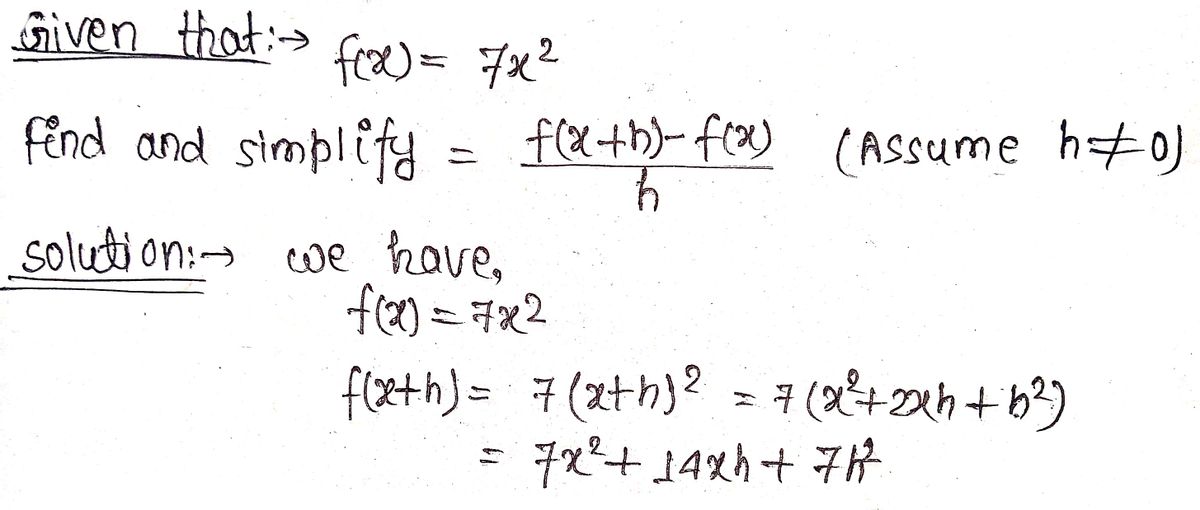 Given that:→ f(x) = 7x²
find and simplify = f(x+h)-f(x) / h (Assume h≠0)
solution:→ we have,
f(x) = 7x2
f(x+h) = 7(x+h)² = 7(x²+2xh+h²)
= 7x²+14xh+7h²